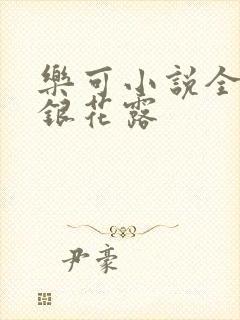 樂可小說全
銀花露
尹豪